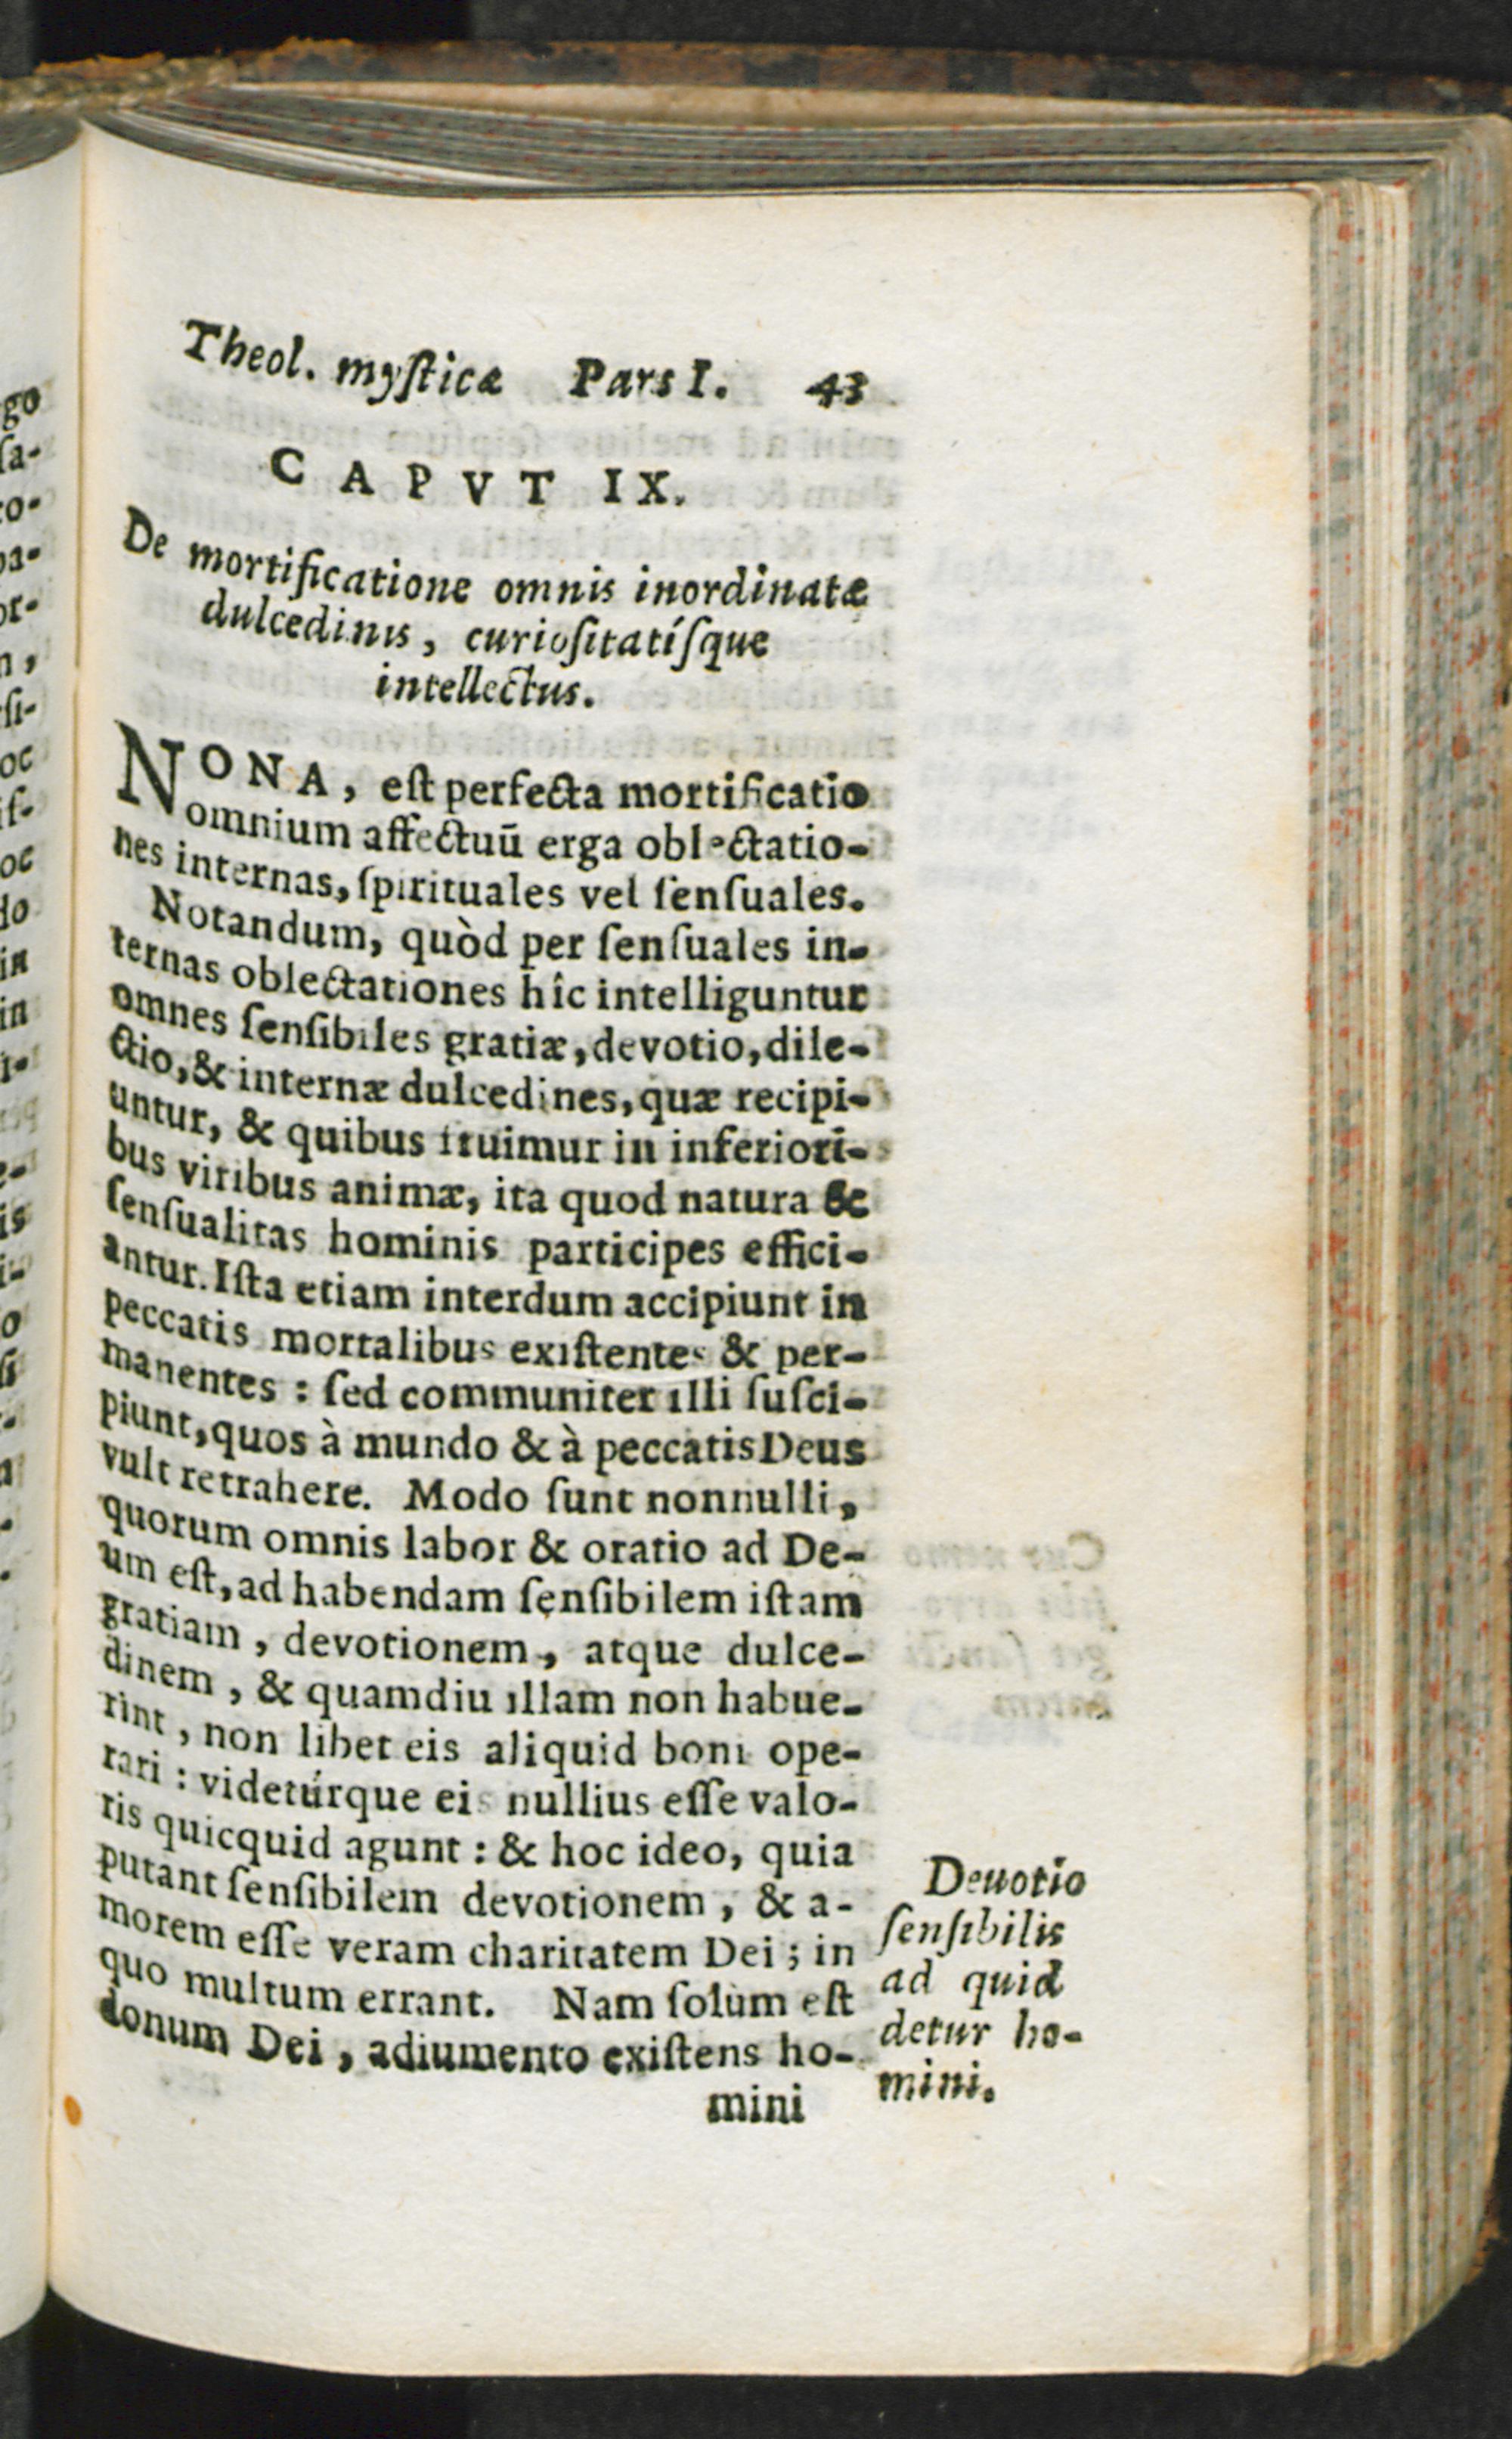 Theol. mysticæ Pars I. 43
CAPVT IX.
De mortificatione omnis inordinatæ
dulcedinis, curiositatísque
intellectus.
NONA, est perfecta mortificatio
omnium affectuū erga oblectatio-
nes internas, spirituales vel sensuales.
Notandum, quòd per sensuales in-
ternas oblectationes hîc intelliguntur
omnes sensibiles gratiæ, devotio, dile-
ctio, & internæ dulcedines, quæ recipi-
untur, & quibus fruimur in inferiori-
bus viribus animæ, ita quod natura &
sensualitas hominis participes effici-
antur. Ista etiam interdum accipiunt in
peccatis mortalibus existentes & per-
manentes : sed communiter illi susci-
piunt, quos à mundo & à peccatis Deus
vult retrahere. Modo sunt nonnulli,
quorum omnis labor & oratio ad De-
um est, ad habendam sensibilem istam
gratiam, devotionem, atque dulce-
dinem, & quamdiu illam non habue-
rint, non libet eis aliquid boni ope-
rari : videtúrque eis nullius esse valo-
ris quicquid agunt : & hoc ideo, quia
putant sensibilem devotionem, & a-
morem esse veram charitatem Dei ; in
quo multum errant. Nam solùm est
donum Dei, adiumento existens ho-
mini
Deuotio
sensibilis
ad quid
detur ho-
mini.